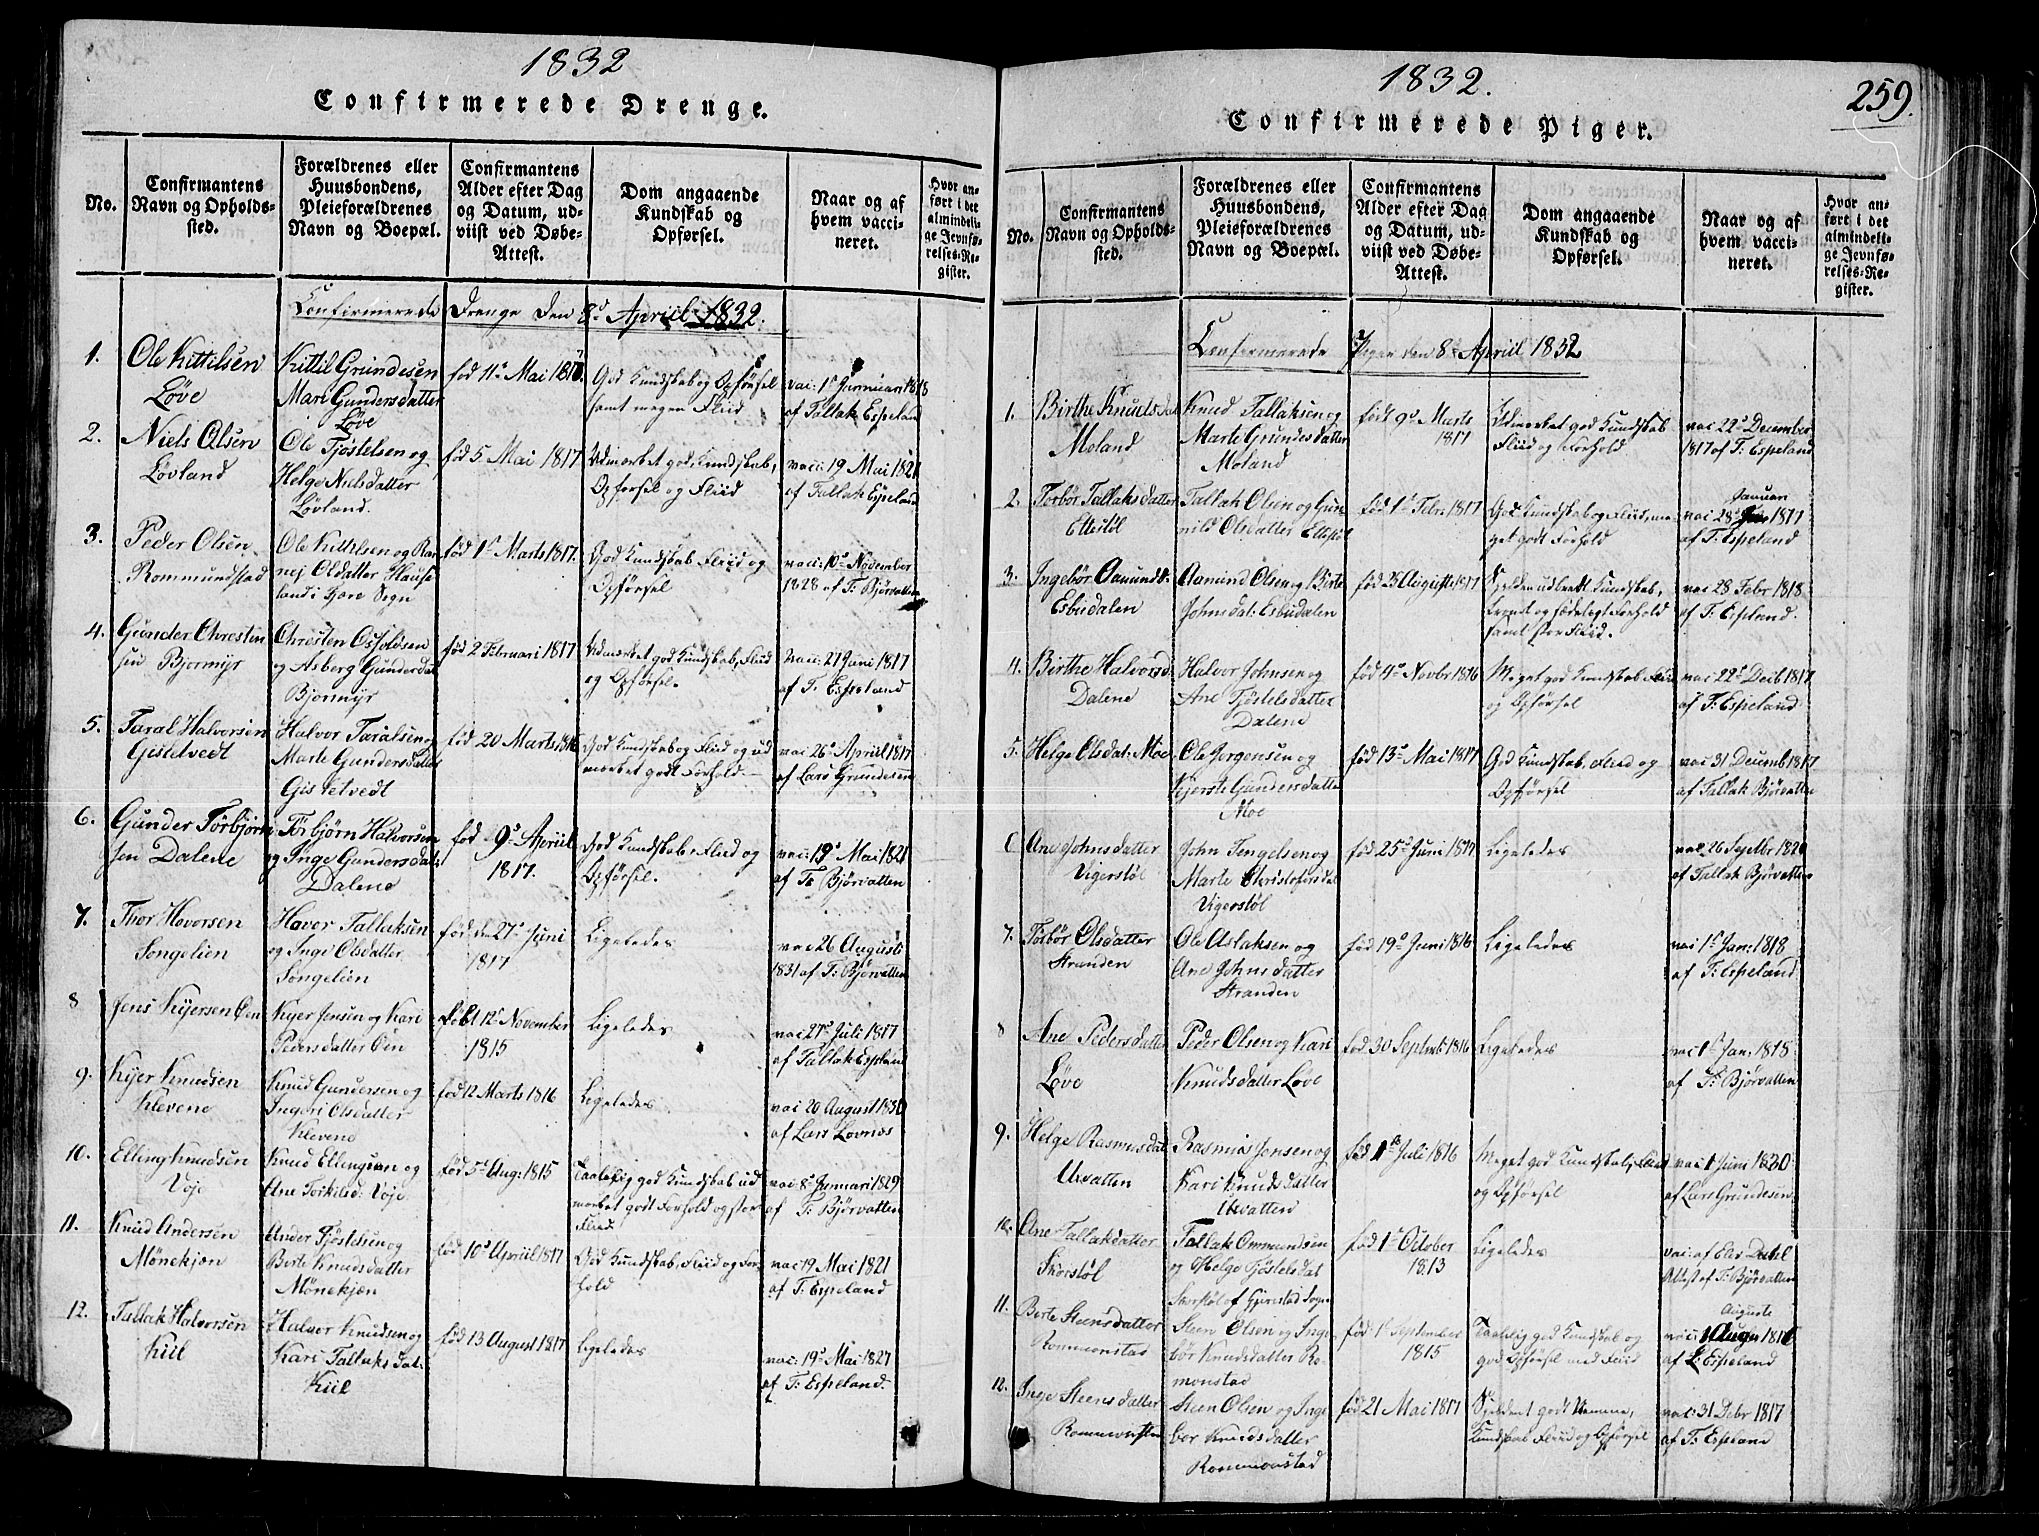 1832
Confirmerede Drenge.
No.
Confirmantens
Navn og Opholds-
sted.
Forældrenes eller
Huusbondens,
Pleieforældrenes
Navn og Boepæl.
Confirmantens
Alder efter Dag
og Datum, ud-
viist ved Døbe-
Attest.
Dom angaaende
Kundskab og
Opførsel.
Naar og af
hvem vacci-
neret.
Hvor an-
ført i det
almindeli-
ge Jevnfø-
relses-Re-
gister.
Confirmerede Drenge den 8d Apriil 1832.
1.
Ole Kittilsen
Løve
Kittil Grundesen
Mari Gundersdatter
Løve
fød 11te Mai 1817.
God Kundskab og Opførsel
samt megen Fliid
vac: 1d Januari 1818
af Tallak Espeland
2.
Niels Olsen
Løvland
Ole Tjøstelsen og
Helge Nielsdatter
Løvland.
fød 5 Mai 1817
Udmærket god Kundskab,
Opførsel og Fliid
vacc: 19 Mai 1821
af Tallak Espeland
3.
Peder Olsen
Rommundstad
Ole Kittilsen og Ran
nej Olsdatter Hause
land i Gjere Sogn
fød 1d Marts 1817.
God Kundskab Fliid og
Opførsel
vacc: 10d November
1828 af T: Bjørvatten
4.
Gunder Chresten
sen Bjormyr
Chresten Osfoldsen
og Asberg Gundersdat
Bjormyr
fød 2 Februari 1817
Udmærket god Kundskab, Fliid
og Opførsel.
vacc: 21 Juni 1817
af T: Espeland
5.
Taral Halvorsen
Gistetvedt
Halvor Taralsen og
Marte Gundersdatter
Gistetvedt
fød 20 Marts 1816
God Kundskab og Fliid og ud
mærket godt Forhold
vac: 26d Apriil 1817
af Lars Grundesen
6.
Gunder Törbjörn
sen Dalene
Törbjörn Halvorsen
og Inge Gundersdat:
Dalene
fød 9d Apriil
1817.
God Kundskab, Fliid og
Opførsel.
vac: 19d Mai 1821
af T: Bjørvatten
7.
Thor Hovorsen
Songelien
Havor Tallaksen
og Inge Olsdatter
Songelien
fød den 27d Juni
1817
Ligeledes
vac 26 August
1831 af T: Bjørvatten
8
Jens Kyersen Øen
Kyer Jensen og Kari
Pedersdatter Øen
født 12d November
1815
Ligeledes
vac: 27d Juli 1817
af Tallak Espeland
9.
Kyer Knudsen
Klevene
Knud Gundersen og
Ingeri Olsdatter
Klevene
fød 12 Marts 1816
Ligeledes
vac 20 August 1830
af Lars Lovnæs
10.
Elling Knudsen
Voje
Knud Ellingsen og
Ane Torkilsd: Voje
fød 5d Aug: 1815
Taalelig god Kundskab ud
mærket godt Forhold og stor
Fliid
vac: 8d Januari 1829
af T: Bjørvatten
11.
Knud Andersen
Mönekjen
Ander Tjöstelsen og
Berte Knudsdatter
Mönekjen
fød 10d Apriil 1817
God Kundskab, Fliid og For-
hold
vac 19 Mai 1821
af T: Espeland
12.
Tallak Halvorsen
Kiil
Halvor Knudsen og
Kari Tallaksdat:
Kiil
fød 13 August 1817
Ligeledes
vac: 19d Mai 1827
af T: Espeland.
1832.
259.
Confirmerede Piger.
No.
Confirmantens
Navn og Opholds-
sted.
Forældrenes eller
Huusbondens,
Pleieforældrenes
Navn og Boepæl.
Confirmantens
Alder efter Dag
og Datum, ud-
viist ved Døbe-
Attest.
Dom angaaende
Kundskab og
Opførsel.
Naar og af
hvem vacci-
neret.
Hvor an-
ført i det
almindeli-
ge Jevnfø-
relses-Re-
gister.
Confermerede Piger den 8d Apriil 1832
1.
Birthe Knudsdat
Moland
Knud Tallaksen og
Marte Grundesdatter
Moland
født 9d Marts
1817
Udmærket god Kundskab
Fliid og Forhold
vac 22d December
1817 af T: Espeland
2.
Törbör Tallaksdatter
Ettestöl
Tallak Olsen og Gun
nild Olsdatter Ettestöl
fød 1d Febr: 1817
God Kundskab og Fliid, me-
get godt Forhold
Januari
vac 28d 1817
af T: Espeland
3.
Ingebör Aamundt:
Esbudalen
Aamund Olsen og Birte
Johnsdat: Esbudalen
fød 25 August 1817
Sjelden udbredt Kundskab,
fromt og sædeligt Forhold
samt stor Fliid.
vac 28 Febr 1818
af T: Espeland.
4.
Birthe Halvorsd:
Dalene
Halvor Johnsen og
Ane Tjöstelsdatter
Dalene
fød 4d Novbr 1816
Meget god Kundskab Fliid
og Opførsel
vac 22d Decb 1817
af T: Espeland
5.
Helge Olsdat: Moe
Ole Jorgensen og
Kjerste Gundersdatter
Moe
fød 13d Mai 1817
God Kundskab, Fliid og
Opførsel
vac 31 Decemb 1817
af Tallak Bjørvatten
6
Ane Johnsdatter
Vigerstöl
John Tengelsen og
Marte Christofersdat
Vigerstöl
fød 25d Juni 1817
Ligeledes
vac 26 Septbr 1820
af Tallak Bjørvatten
7.
Törbör Olsdatter
Stranden
Ole Aslaksen og
Ane Johnsdatter
Stranden
fød 19d Juni 1816
Ligeledes
vac 1d Jan: 1818
af T: Espeland
8
Ane Pedersdatter
Løve
Peder Olsen og Kari
Knudsdatter Løve
fød 30 Septmb: 1816
Ligeledes
vac 1d Jan: 1818
af T: Bjørvatten
9.
Helge Rasmusdat
Ubvatten
Rasmus Jensen og
Kari Knudsdatter
Ubevatten
fød 1d Juli 1816
Meget god Kundskab, Fliid
og Opførsel
vac 1 Juni 1830
af Lars Grundesen
10.
Ane Tallakdatter
Skorstöl
Tallak Ommundsen
og Helge Tjöstelsdat
Skorstöl af Gjerestad Sogn
fød 1d October
1813
Ligeledes
vac: af Elev Dahl
Attest af T: Bjørvatten
11.
Berte Steensdatter
Rommonstad
Steen Olsen og Inge
bör Knudsdatter Ro-
monstad
fød 1d September
1815
Taalelig god Kundskab og
god Opførsel med Fliid
Auguste
vac: 1 Augu 1816
af L: Espeland
12.
Inge Steensdatter
Steen Olsen og Inge
bor Knudsdatter
Rommonstad
fød 21 Mai 1817
Sjeldent godt Nemme,
Kundskab Fliid og Opførsel
vac: 31 Debr 1817
af T: Espeland